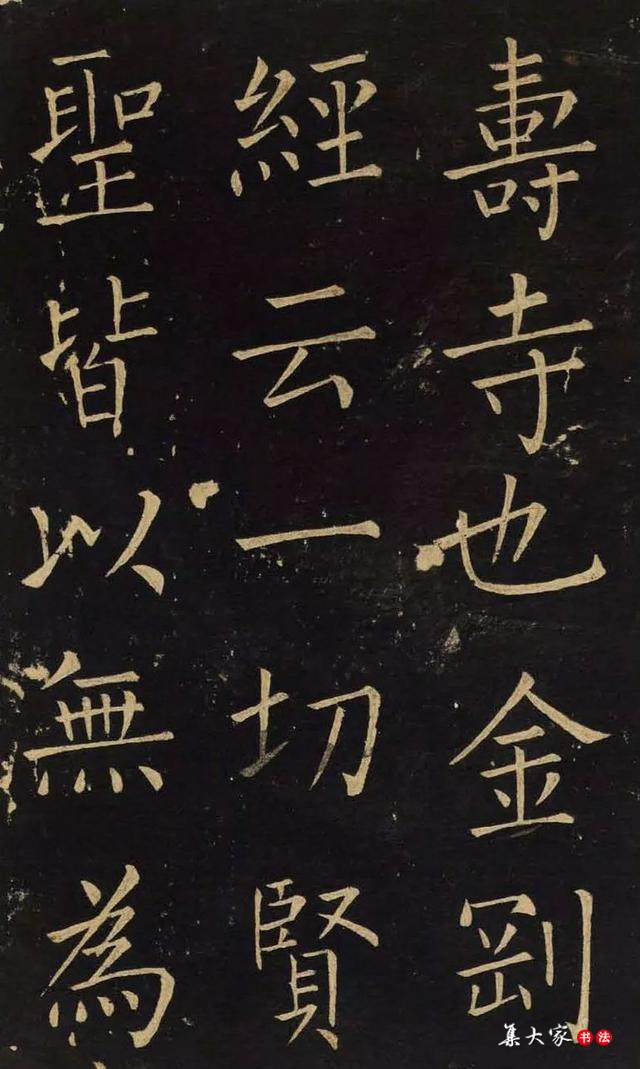 壽寺也金剛
經云一切賢
聖皆以無為
集大家书法